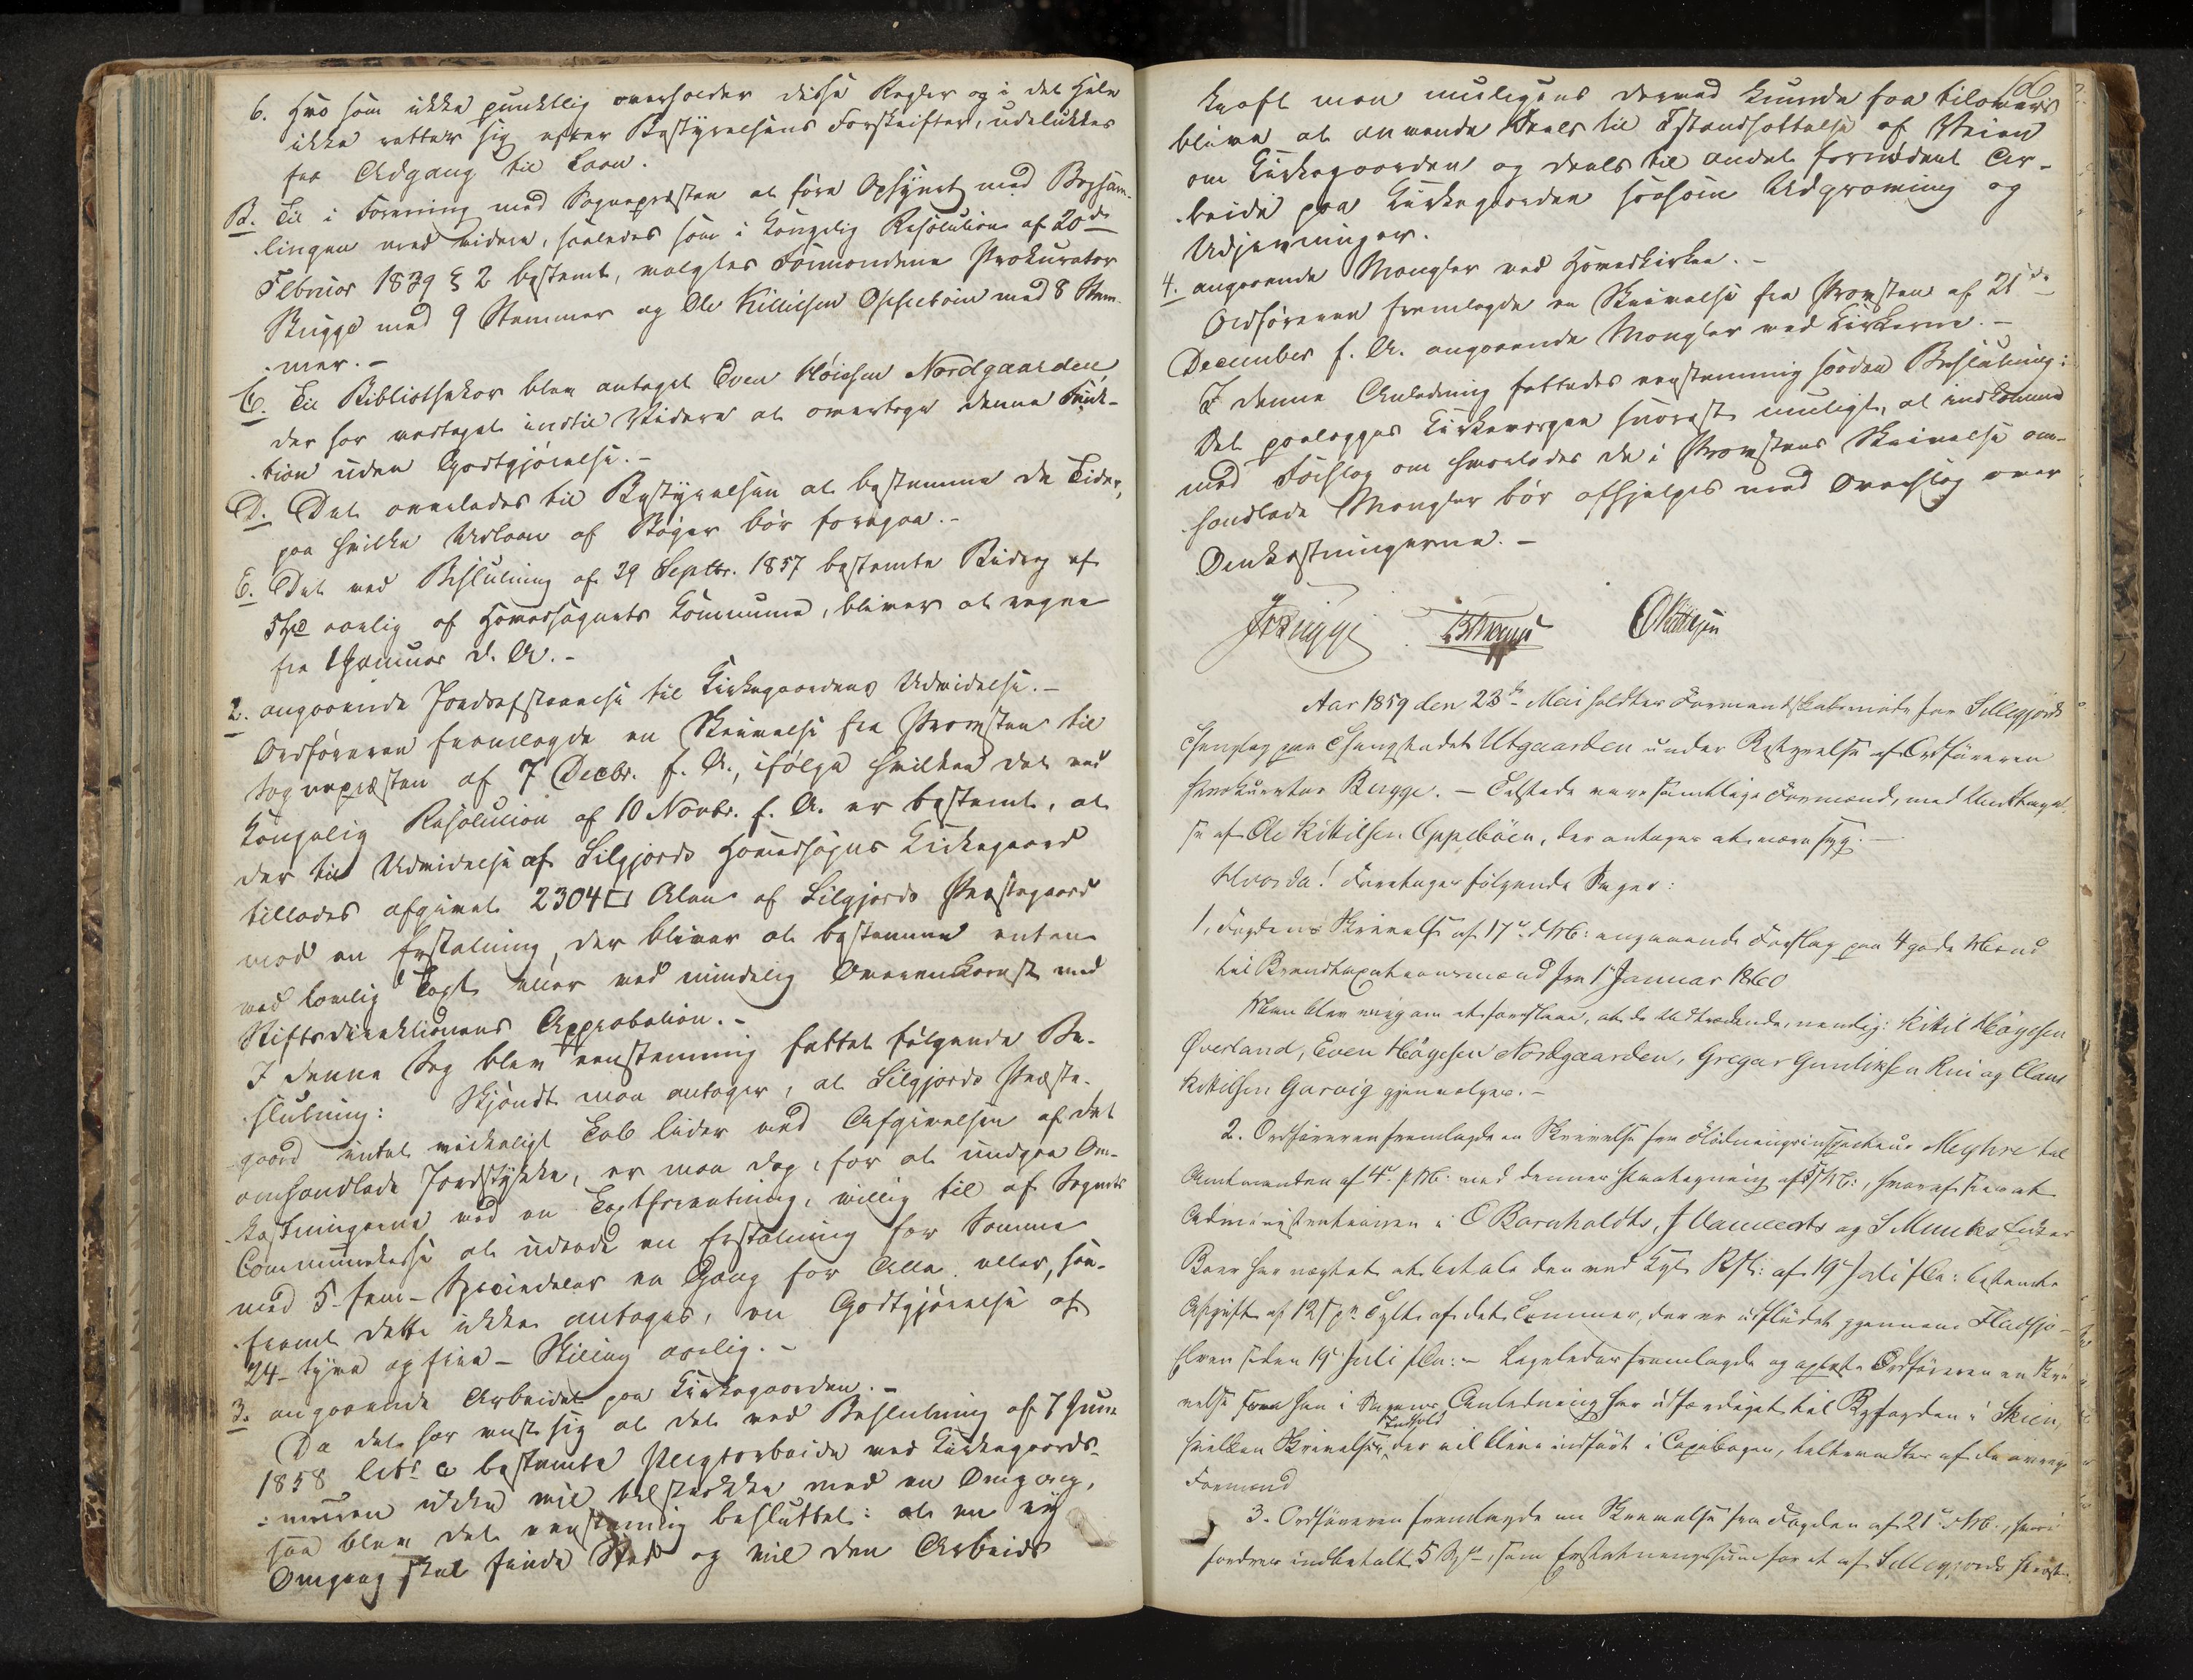 6. Hvo som ikke punktlig overholder disse Regler og i det Hele
ikke retter sig efter Bestyrelsens Forskrifter, udelukkes
fra Adgang til Laan.
B. Til i Forening med Sognepræsten at føre Opsynet med Bogsam-
lingen med videre, saaledes som i Kongelig Resolution af 20de
Februar 1839 § 2 bestemt, valgtes Formændene Prokurator
Brugge med 9 Stemmer og Ole Kittilsen Oppebøen med 8 Stem-
mer. -
C. Til Bibliothekar blev antaget Even Høiesen Nordgaarden,
der har vedtaget indtil Videre at overtage denne Funk-
tion uden Godtgjørelse. -
D. Det overlades til Bestyrelsen at bestemme de Tider,
paa hvilke Udlaan af Bøger bør foregaa. -
E. Det ved Beslutning af 29 Septbr. 1857 bestemte Bidrag af
5 Spd aarlig af Hovedsognets Kommune, bliver at regne
fra 1 Januar d. A. -
2. angaaende Jordafstaaelse til Kirkegaardens Udvidelse. -
Ordføreren fremlagde en Skrivelse fra Provsten til
Sognepræsten af 7 Decbr. f. A., ifølge hvilken det ved
Kongelig Resolution af 10 Novbr. f. A. er bestemt, at
der til Udvidelse af Silgjords Hovedsogns Kirkegaard
tillades afgivet 2304 □ Alen af Silgjords Præstegaard
mod en Erstatning, der bliver at bestemme enten
ved lovlig Taxt eller ved mindelig Overenskomst med
Stiftsdirektionens Approbation. -
I denne Sag blev eenstemmig fattet følgende Be-
slutning: Skjøndt man antager, at Silgjords Præste-
gaard intet virkeligt Tab lider ved Afgivelsen af det
omhandlede Jordstykke, er man dog, for at undgaa Om-
kostningerne ved en Taxtforretning, villig til af Sognets
Communekasse at udrede en Erstatning for Somme
med 5 - fem - Speciedaler en Gang for Alle eller, saa-
fremt dette ikke antages, en Godtgjørelse af
24 - tyve og fire - Skilling aarlig. -
3. angaaende Arbeidet paa Kirkegaarden. -
Da det har viist sig at det ved Beslutning af 7 Juni
1858 litr c bestemte Pligtarbeide ved Kirkegaards-
muren ikke vil tilstrække med en Omgang,
saa blev det eenstemmig besluttet: at en ny
Omgang skal finde Sted og vil den Arbeids
166
kraft man muligens derved kunde faa tilovers
blive at anvende deels til Istandsættelse af Veien
om Kirkegaarden og deels til andet fornødent Ar-
beide paa Kirkegaarden saasom Udgravning og
Udjevninger.
4. angaaende Mangler ved Hovedkirken. -
Ordføreren fremlagde en Skrivelse fra Provsten af 21de
December f. A. angaaende Mangler ved Kirkerne. -
I denne Anledning fattedes eenstemmig saadan Beslutning:
Det paalægges Kirkeværgen snarest muligt, at indkomme
med Forslag om hvorledes de i Provstens Skrivelse om-
handlede Mangler bør afhjelpes med Overslag over
Omkostningerne. -
Aar 1859 den 23de Mai holdtes Formandskabsmøde for Sillegjords
Thinglag paa Thingstedet Utgaarden under Bestyrelse af Ordføreren
Prokurator Brugge. - Tilstede vare samtlige Formænd, med Undtagel-
se af Ole Kittilsen Oppebøen, der antages at være syg. -
Hvorda! Foretages følgende Sager:
1, Fogdens Skrivelse af 17de d. M. angaaende Forslag paa 4 gode Mænd
til Brandtaxationsmænd fra 1 Januar 1860
Man blev enig om at foreslaae, at de Udtrædende, nemlig: Kittil Høyesen
Øverland, Even Høyesen Nordgaarden, Gregar Gunliksen Rui og Claus
Kittilsen Garvig gjenvælges. -
2. Ordføreren fremlagde en Skrivelse fra Flødningsinspecteur Meyhre til
Amtmanden af 4de f. M. med dennes Paategning af 5 s. M., hvoraf sees at
Administrationen i C Bornholdts, J Vauverts og S Munkes Enkes
Boer har nægtet at betale den ved Kgl. Rsl. af 19 Juli f. A. bestemte
Afgift af 12 s pr Tylt af det Tømmer, der er udflødet gjennem Fladsjø-
Elven siden 19 Juli f. A. - Ligeledes fremlagde og oplæste Ordføreren en Skri
velse som han i Sagens Anledning har udfærdiget til Byfogden i Skien,
hvilken Skrivelses Indhold der vil blive indført i Copibogen, tiltraadtes af de øvrige
Formænd
3. Ordføreren fremlagde en Skrivelse fra Fogden af 21de d. M., hvori
fordres indbetalt 5 Spd, som Erstatningssum for et af Sillegjords Præste-